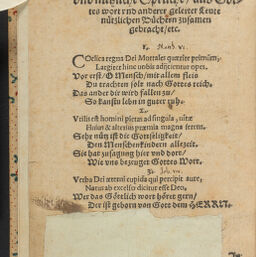 vnd nützliche Sprüche/ aus Got-
tes wort vnd anderer geleiter Leute
nützlichen Büchern zusamen
gebracht/ etc.
Coelica regna Dei Mortales quærite primùm,
Largitere hinc uobis adijcientur opes.
Vor erst/ O Mensch/ mit allem fleis
Du trachten solt nach Gottes reich.
Das ander dir wird fallen zu/
So kanstu lebn in guter ruh.
2.
Vtilis est homini pietas ad singula, uitæ
Huius & alterius præmia magna ferens.
Sehr nütz ist die Gottseligkeit/
Den Menschenkindern allezeit.
Sie hat zusagung hier vnd dort/
Wie vns bezeuget Gottes Wort.
Verba Dei æterni cupida qui percipit aure,
Natus ab excelso dicitur esse Deo.
Wer das Göttlich wort höret gern/
Der ist geborn von Gott dem HERRN.